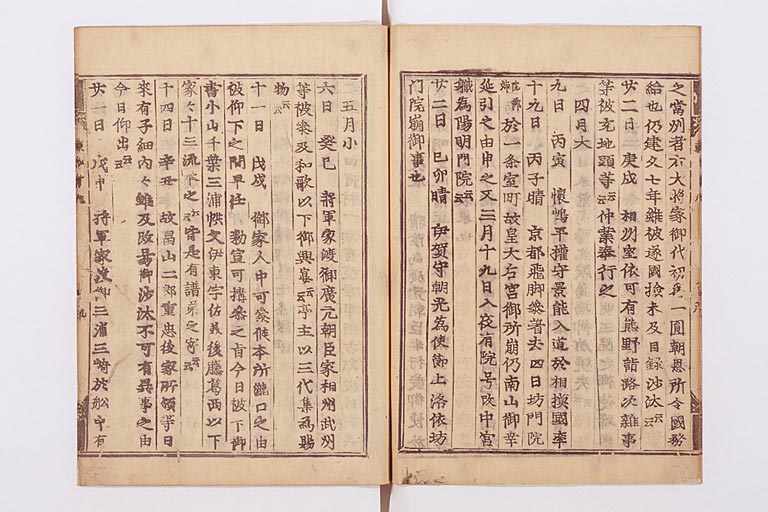 之當州者右大將家御代初爲一圓朝恩所令國務
給也仍建久七年雖被遂國撿未及目録沙汰云々
廿二日 庚戌 相州室依可有熊野詣路次雜事
等被充地頭等云々仲業奉行之
四月大
九日 丙寅 懷嶋平權守景能入道於相摸國卒
十九日 丙子晴 京都飛脚參着去四日坊門院
於一条室町故皇太后宮御所崩仍南山御幸
延引之由申之又三月十九日入夜有院号改中宮
職爲陽明門院云々
廿二日 己卯晴 伊賀守朝光爲使節上洛依坊
門院崩御事也
五月小
六日 癸巳 將軍家渡御廣元朝臣家相州武州
等被參及和歌以下御興宴云々亭主以三代集爲賜
物云々
十一日 戊戌 御家人中可參候本所瀧口之由
被仰下之間早任 勅宣可搆參之旨今日被下御
書小山千葉三浦秩父伊東宇佐美後藤葛西以下
家々十三流下之云々皆是有譜第之寄云々
十四日 辛丑 故畠山二郎重忠後家所領等日
來有子細内々雖及改易御沙汰不可有異事之由
今日仰出云々
廿一日 戊申 將軍家渡御三浦三崎於舩中有